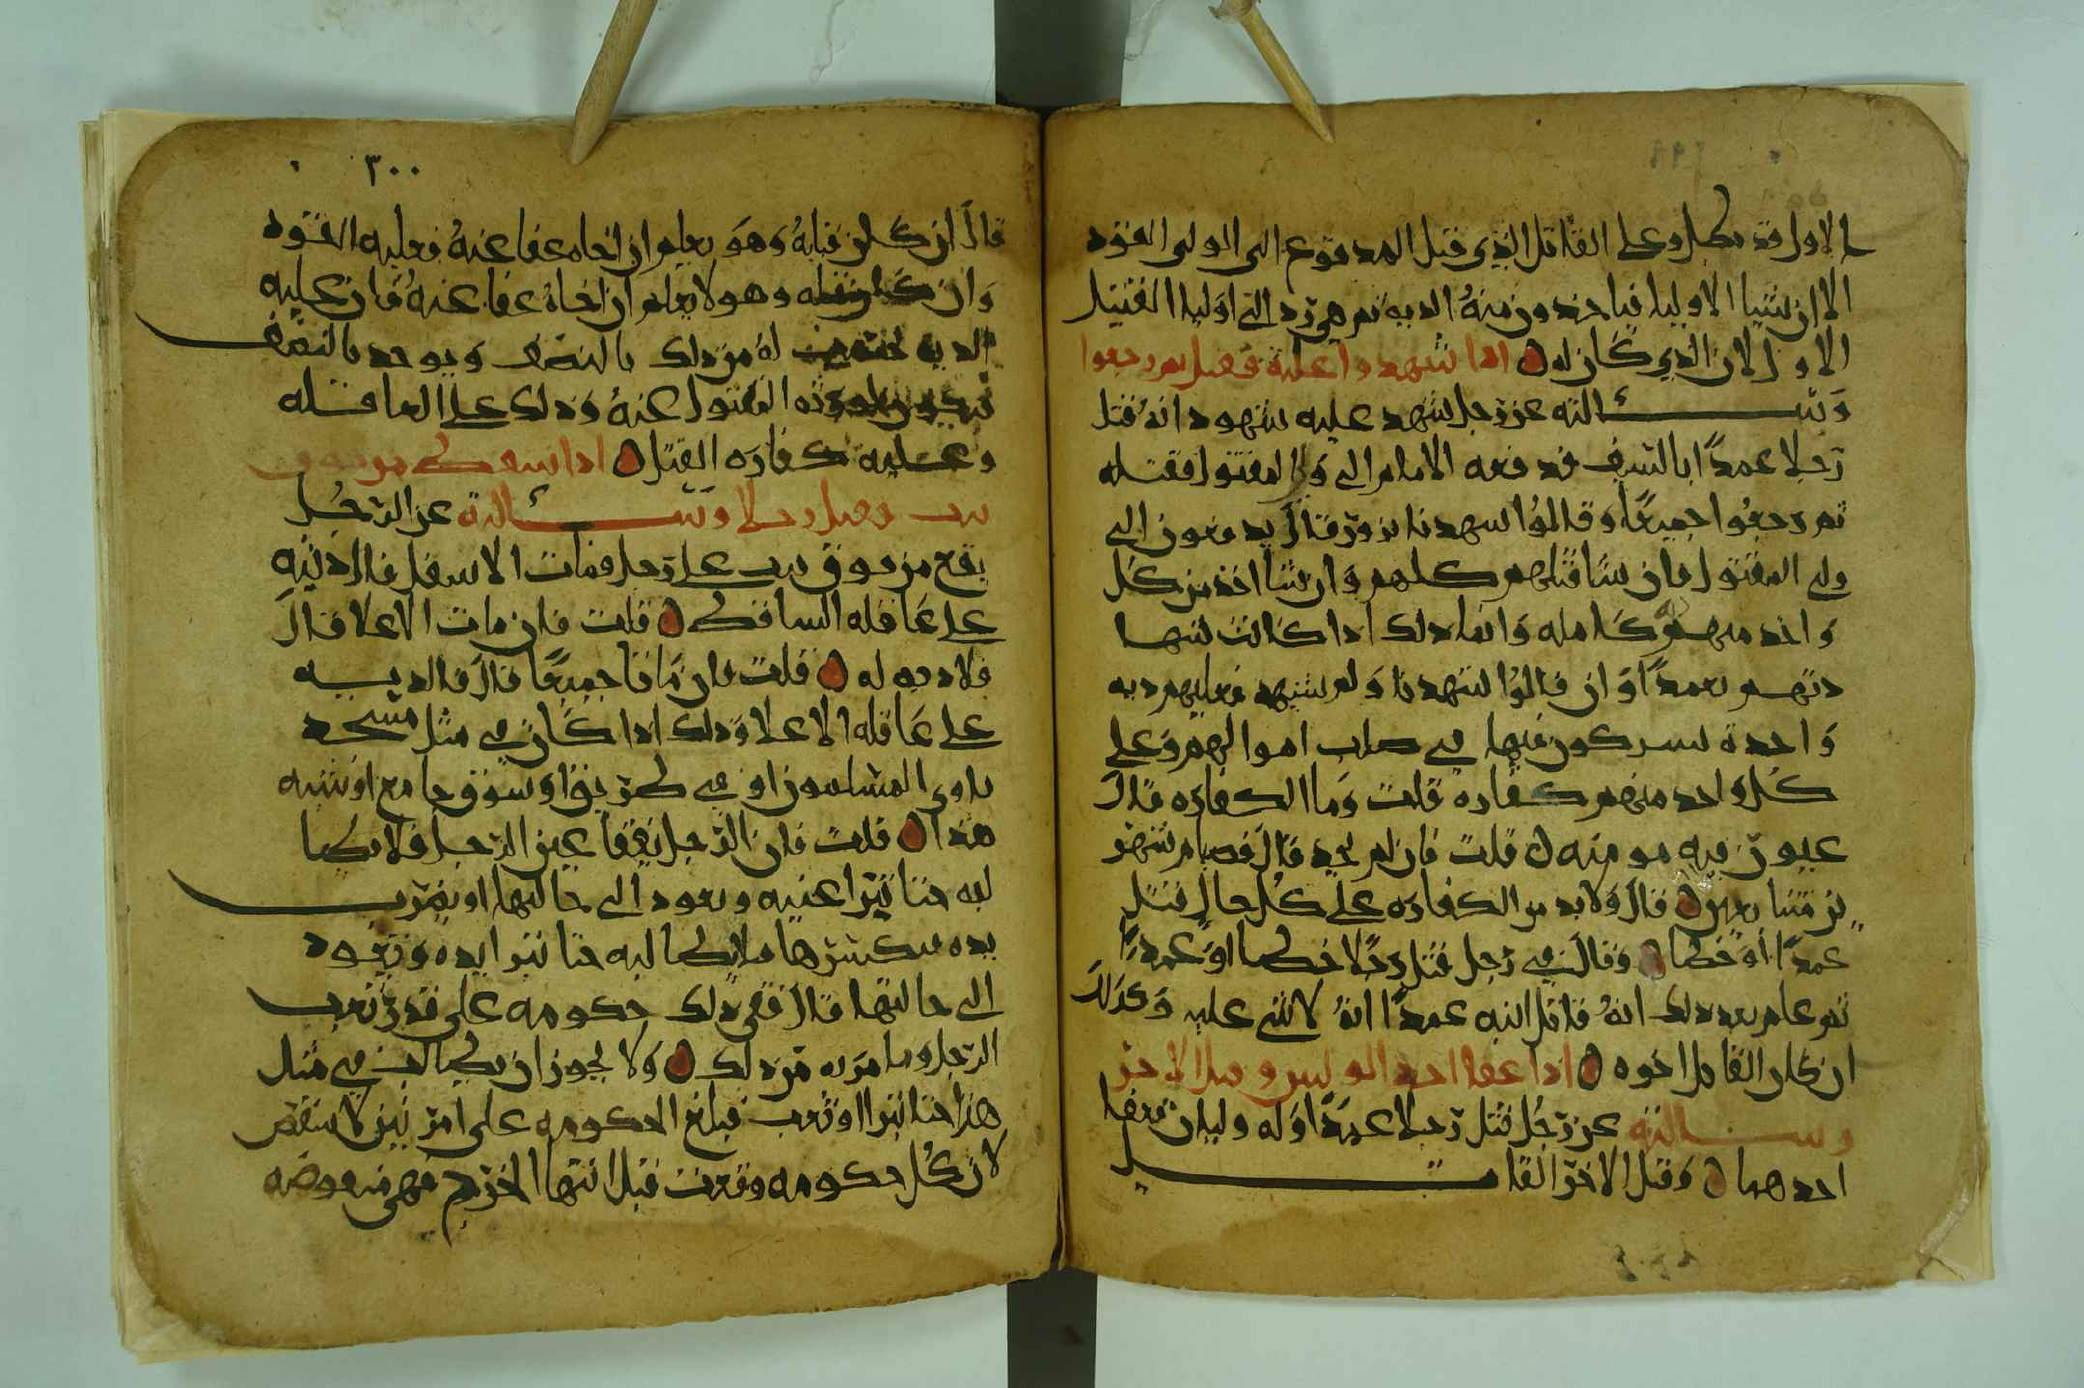 الاول قد بطل وعلى القاتل الذي قتل المدفوع الى الولي القود
الا ان يشا الاوليا فياخذون منهُ الديه ثم هي ترد الى اوليا القتيل
الاول لان الذي كان له اذا شهدوا عليه فقتل ثم رجعوا
وَسـالته عن رَجل شهد عليه شهود انهُ قتل
رَجلا عمدًا بالسيف فدفعه الامام الى وَلي المقتول فقتله
ثم رجعُوا جميعًا وقالوُا شهدنا بزور قالَ يدفعون الى
ولي المقتول فان شا قتلهم كلهم وَان شا اخذ من كل
وَاحد منهم ديه كامله وَانما ذلك اذا كانت شهـا
دتهـم تعمدًا وَان قالوُا شبهنا وَلم فعليهم ديه
وَاحدة يشتركون فيها في صلب اموالهم وَعلى
كُل واحد منهم كفاره قلت وَما الكفاره قالَ
فيه مومنه قلت فان لم يجد قالَ فصيام شهر
ين متتابعين قالَ وَلابد من الكفاره على كُل حال قتل
عمدًا اوَ خطا وَقالَ في رَجل قتل رَجلا خطا اوَ عمدًا
ثم علم بعد ذلك انهُ قاتل ابيه عمدًا انهُ لا شي عليه وَكذلكَ
ان كان القاتل اخوه اذا عفا احد الوليين وقتل الاخر
وسـالته عن رَجُل قتل رَجلا عمدًا وَله وليان فعفا
احدهما وَقتل الاخر القاتـل
٣٠٠
قالَ ان كان قتلهُ وَهوَ يعلم ان اخاه عفا عنهُ فعليه القود
وَان كان قتله وهو لا يعلم ان اخاهُ عفا عنهُ فان عليه
الديه لهُ من ذلك بالنصف وَيوخذ بالنصف
فيكون لورثه المقتول عنهُ وَذلك على العاقله
وعـليه كفارَه القتل اذا سقط من فوق
بيت وقتل رجلا وسـالته عن الرَجُل
يقع من فوق بيت على رَجل فمات الاسفل قالَ ديته
على عَاقله الساقط قلت فان مات الاعلا قالَ
فلا ديه له قلت فان مَاتا جميعًا قالَ فالديـه
على عَاقله الاعلا وَذلك اذا كان في مثل مسجد
ياوي المسلمون او في طريق اوَ سوق جامع اوَ شبه
هذا قلت فان الرَجل يفقا عين الرَجل فلا يطا
لبه حتا تبرا عنيه ويعود الى حالتها او يضرب
يده فيكسرها فلا يطالبه حتا تبرا يده وَتعود
الى حالتها قالَ ففي ذلك حكومه على قدر تعب
الرَجل وما مر به من ذلك وَلا يجوز ان يطالب في مثل
هذا حتا تبرا او تعب فبلغ الحكومه على امر بين لا ينتقض
لان كُل حكومه وقعت قبل انتها الجرح فهي منقوضه